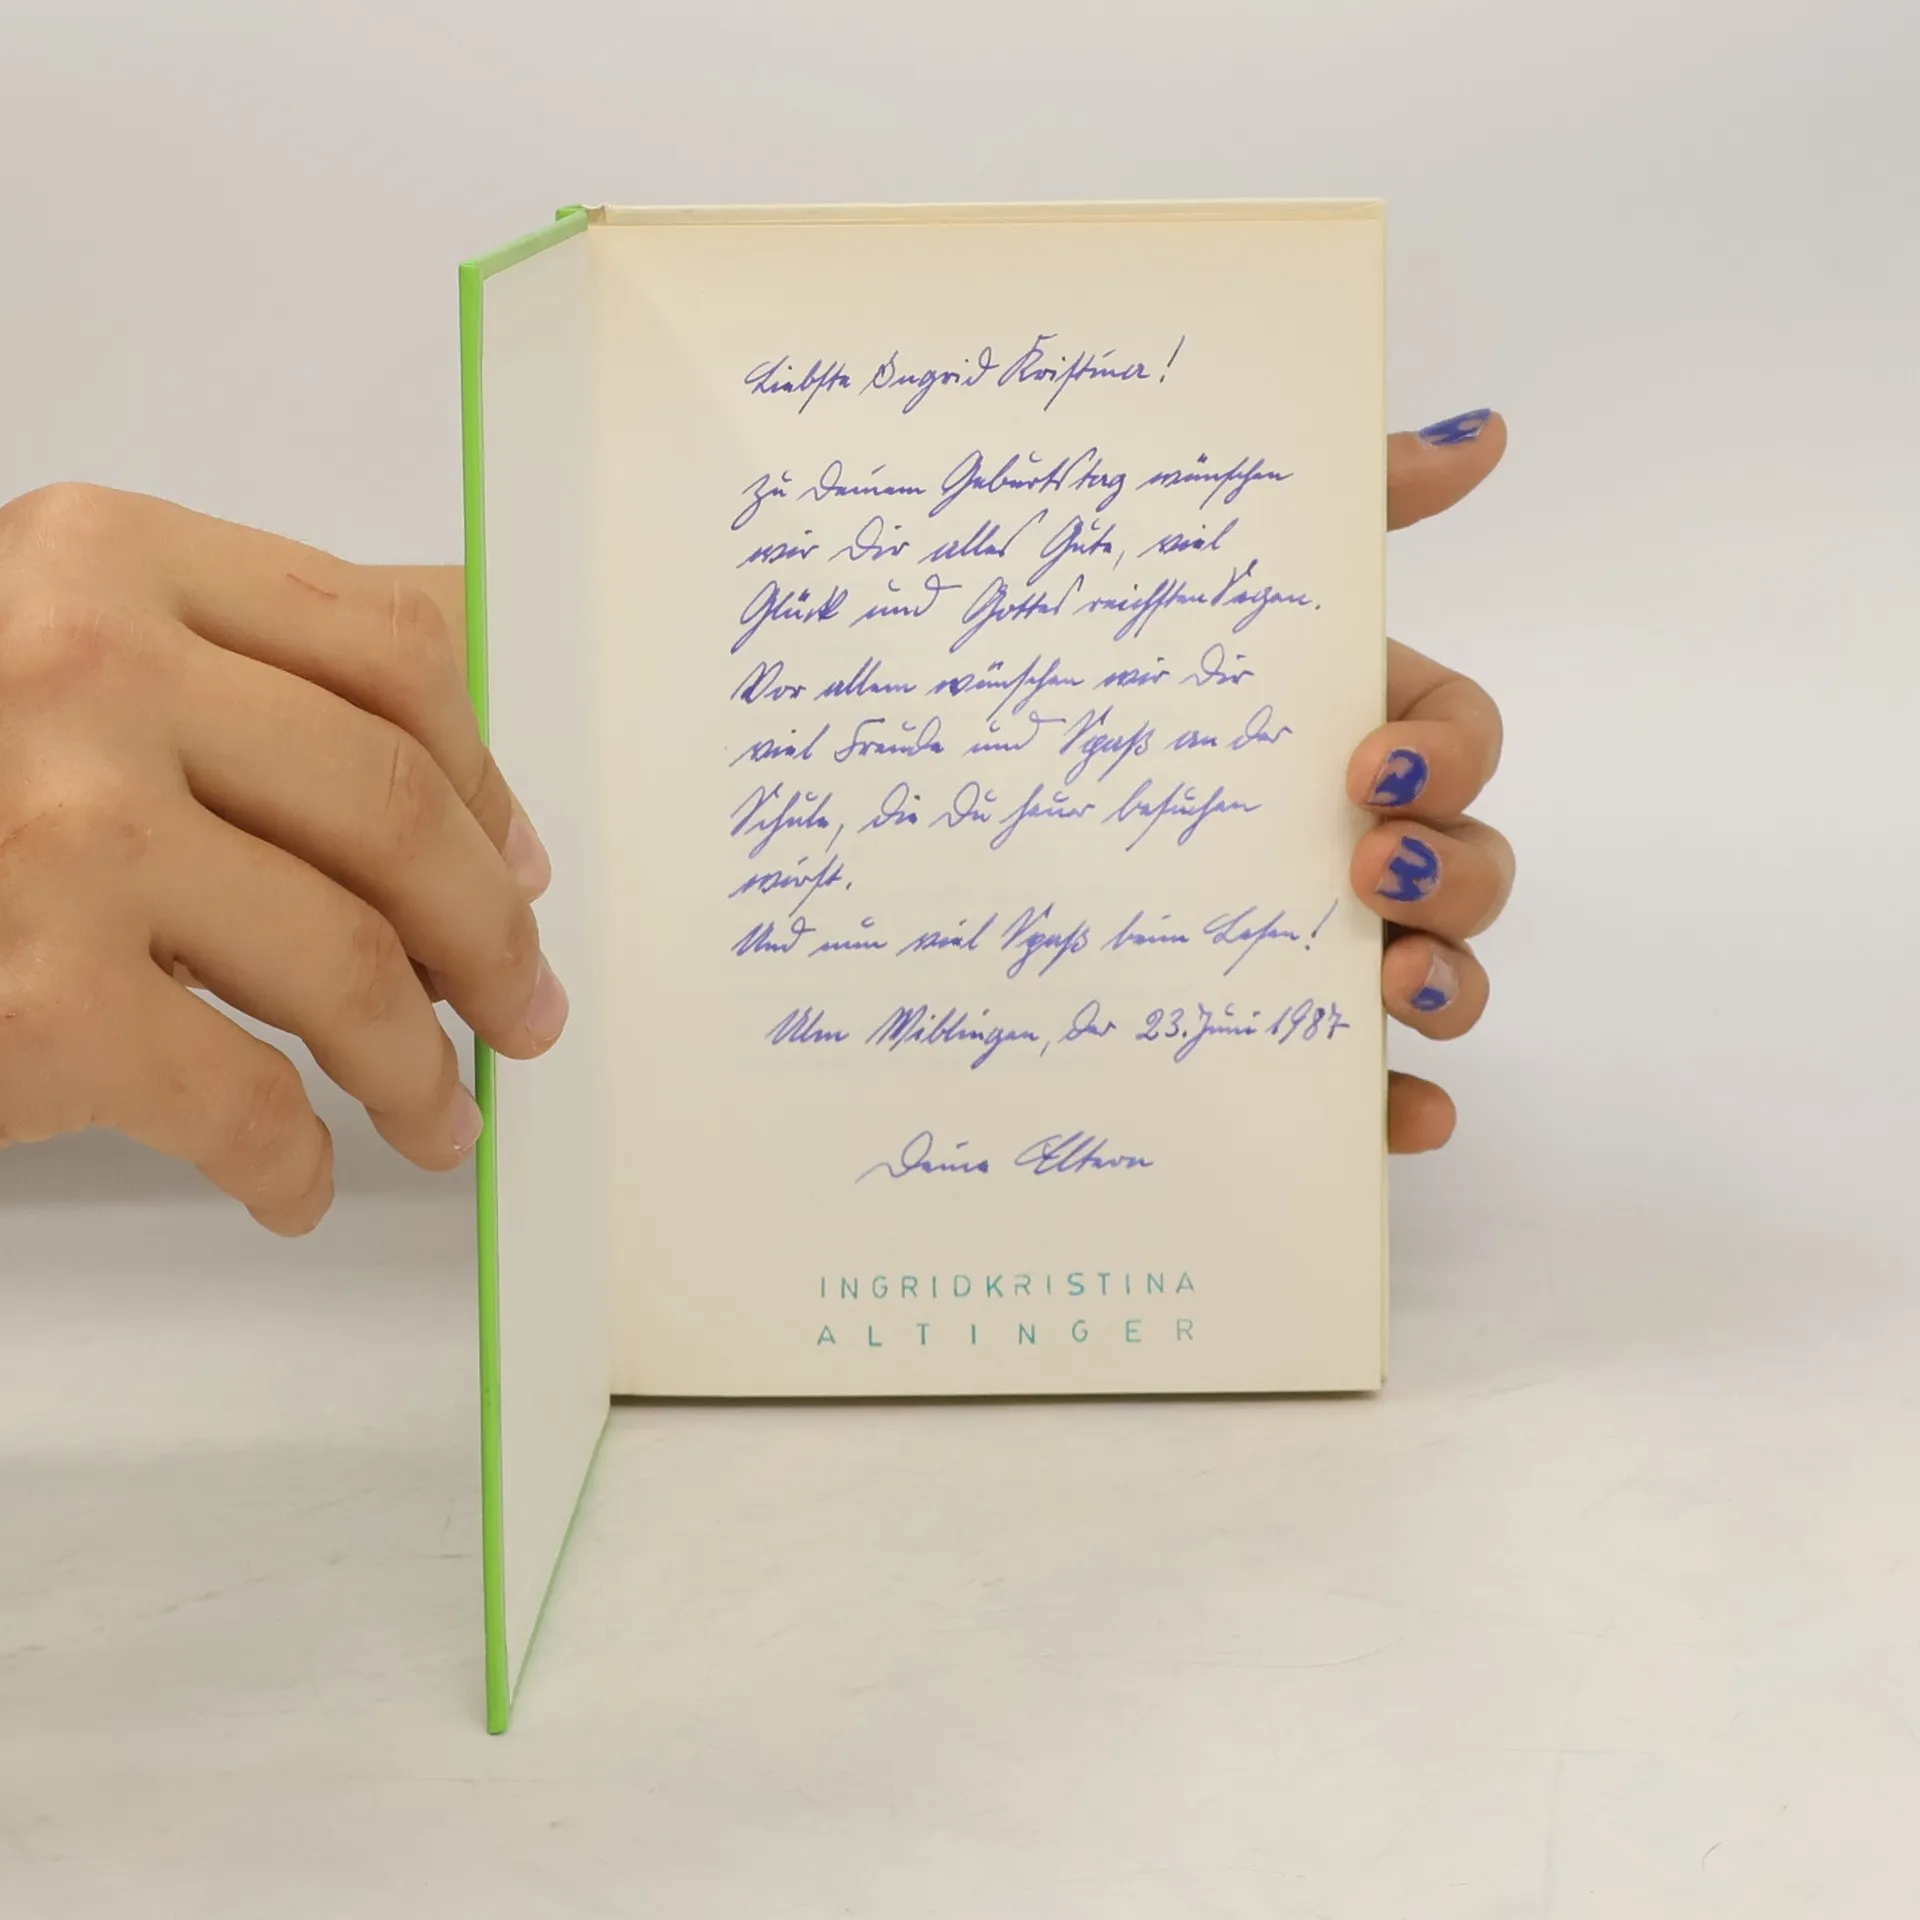 Liebste Ingrid Kristina!
Zu Deinem Geburtstag wünschen
wir Dir alles Gute, viel
Glück und Gottes reichsten Segen.
Vor allem wünschen wir Dir
viel Freude und Spaß an der
Schule, die Du heuer besuchen
wirst.
Und nun viel Spaß beim Lesen!
Ulm Wiblingen, der 23. Juni 1987
Deine Eltern
INGRIDKRISTINA
ALTINGER